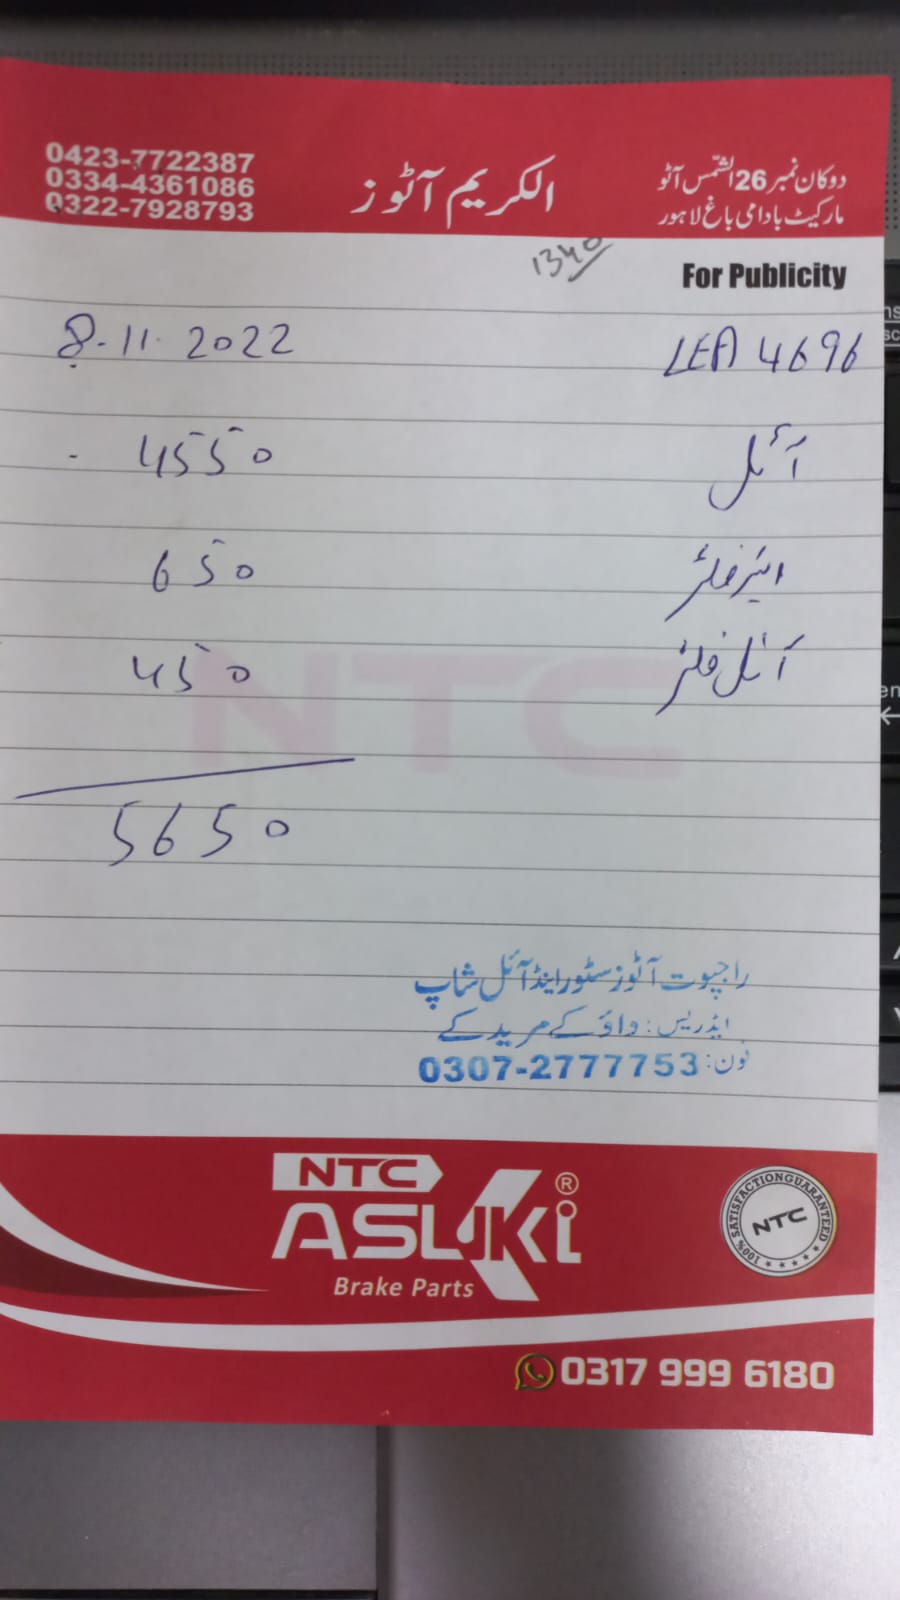 0423-7722387
0334-4361086
0322-7928793
الکریم آٹوز
دوکان نمبر 26 الشمس آٹو
مارکیٹ بادامی باغ لاہور
1340
For Publicity
8-11-2022
LEA 4696
آئل 4550
ائیر فلٹر 650
آئل فلٹر 450
5650
NTC
راجپوت آٹوز سٹور اینڈ آئل شاپ
ایڈریس: داؤکے مریدکے
فون: 0307-2777753
NTC
ASUKi ®
Brake Parts
100% SATISFACTION GUARANTEED
NTC
0317 999 6180